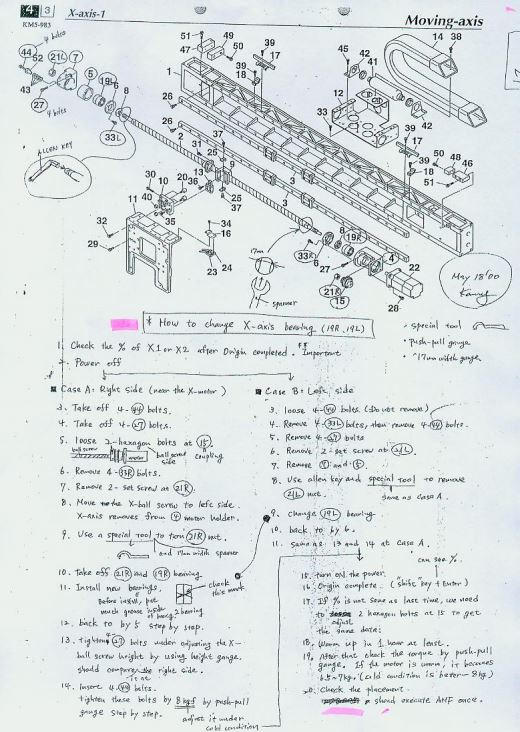 4 3 X-axis-1
Moving-axis
KM5-983
4 bolts
4 bolts
ALLEN KEY
17mm
spanner
May 18'00
* How to change X-axis bearing (19R, 19L)
· special tool
· Push-pull gauge
· 17mm width gauge
1. Check the % of X1 or X2 after Origin completed. Important
2. Power off
■ Case A: Right side (near the X-motor)
3. Take off 4-44 bolts.
4. Take off 4-27 bolts.
5. loose 2-hexagon bolts at 15 coupling
ball screw motor ball screw side
6. Remove 4-33R bolts.
7. Remove 2-set screw at 21R.
8. Move the X-ball screw to left side.
X-axis removes from 4 motor holder.
9. Use a special tool to turn 21R nut.
and 17mm width spanner
10. Take off 21R and 19R bearing
11. Install new bearings,
check this mark
Before install, put
much grease inside
of bearing. 2 bearing
12. back to by 5 step by step.
13. tighten 4-27 bolts under adjusting the X-
ball screw height by using height gauge.
should compare the right side.
14. Insert 4-44 bolts.
tighten these bolts by 8kgf by push-pull
gauge step by step.
adjust it under
cold condition
■ Case B: Left side
3. loose 4-44 bolts. (Do not remove)
4. Remove 4-33L bolts, then remove 4-44 bolts.
5. Remove 4-27 bolts
6. Remove 2-set screw at 21L.
7. Remove 7 and 5.
8. Use allen key and special tool to remove
21L nut.
same as case A.
9. change 19L bearing
10. back to by 6.
11. same as 13 and 14 at Case A.
can see %.
15. turn ON the power.
16. Origin complete. (Shift key + Enter)
17. If % is not same as last time, we need
to adjust 2 hexagon bolts at 15 to get
the same data.
18. Warm up in 1 hour at least.
19. After that check the torque by push-pull
gauge. If the motor is warm, it becomes
6.5~7kg. (cold condition is better - 8kg)
20. Check the placement.
should execute ANF once.